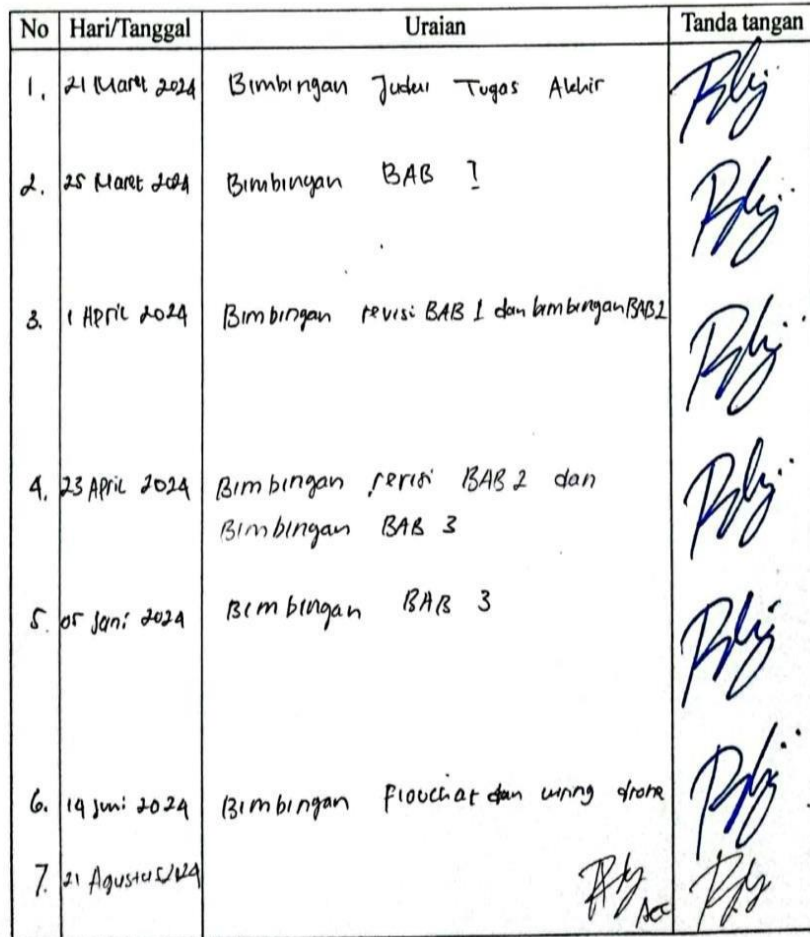 No Hari/Tanggal Uraian Tanda tangan
1. 21 Maret 2024 Bimbingan Judul Tugas Akhir
2. 25 Maret 2024 Bimbingan BAB 1
3. 1 April 2024 Bimbingan revisi BAB 1 dan bimbingan BAB 2
4. 23 April 2024 Bimbingan revisi BAB 2 dan
Bimbingan BAB 3
5. 05 Juni 2024 Bimbingan BAB 3
6. 19 Juni 2024 Bimbingan Flouchat dan wiring drone
7. 21 Agustus 2024 Acc